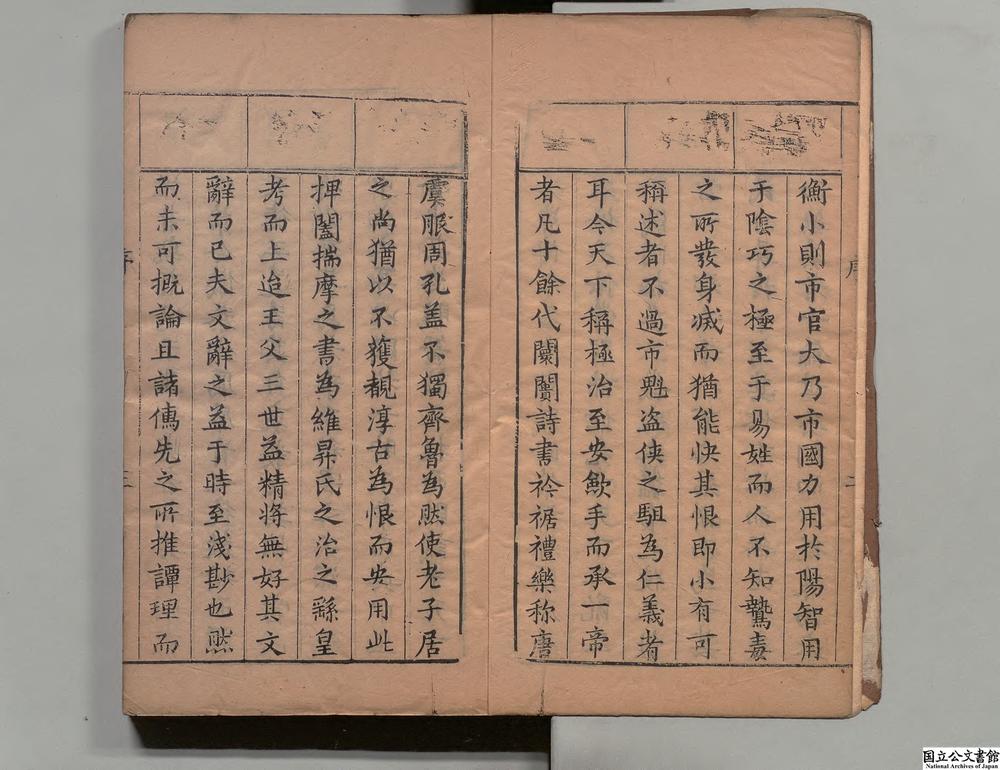 序 二
衡小則市官大乃市國力用於陽智用
于陰巧之極至于易姓而人不知鷙毒
之所發身滅而猶能快其恨即小有可
稱述者不過市魁盜俠之駔為仁義者
耳今天下稱極治至安歛手而承一帝
者凡十餘代闤闠詩書衿裾禮樂称唐
虞服周孔盖不獨齊魯為然使老子居
之尚猶以不獲覩淳古為恨而安用此
捭闔揣摩之書為維昇氏之治之繇皇
考而上迨王父三世益精將無好其文
辭而已夫文辭之益于時至淺尠也然
而未可概論且諸儁先之所推譚理而
序 三
国立公文書館
National Archives of Japan